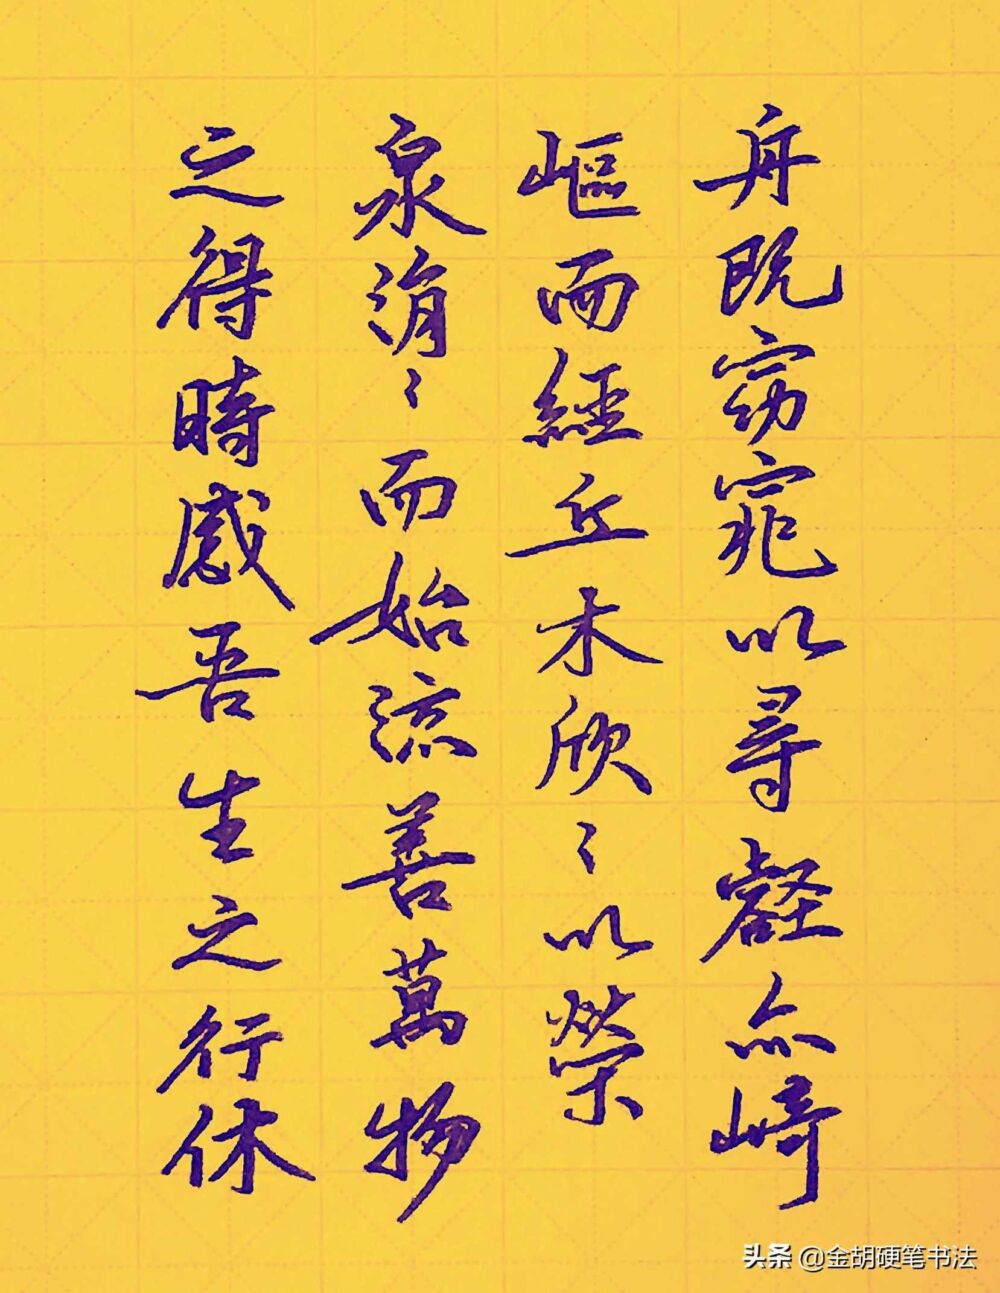 舟既窈窕以尋壑亦崎
嶇而經丘木欣〻以榮
泉涓〻而始流善萬物
之得時感吾生之行休
头条 @金胡硬笔书法